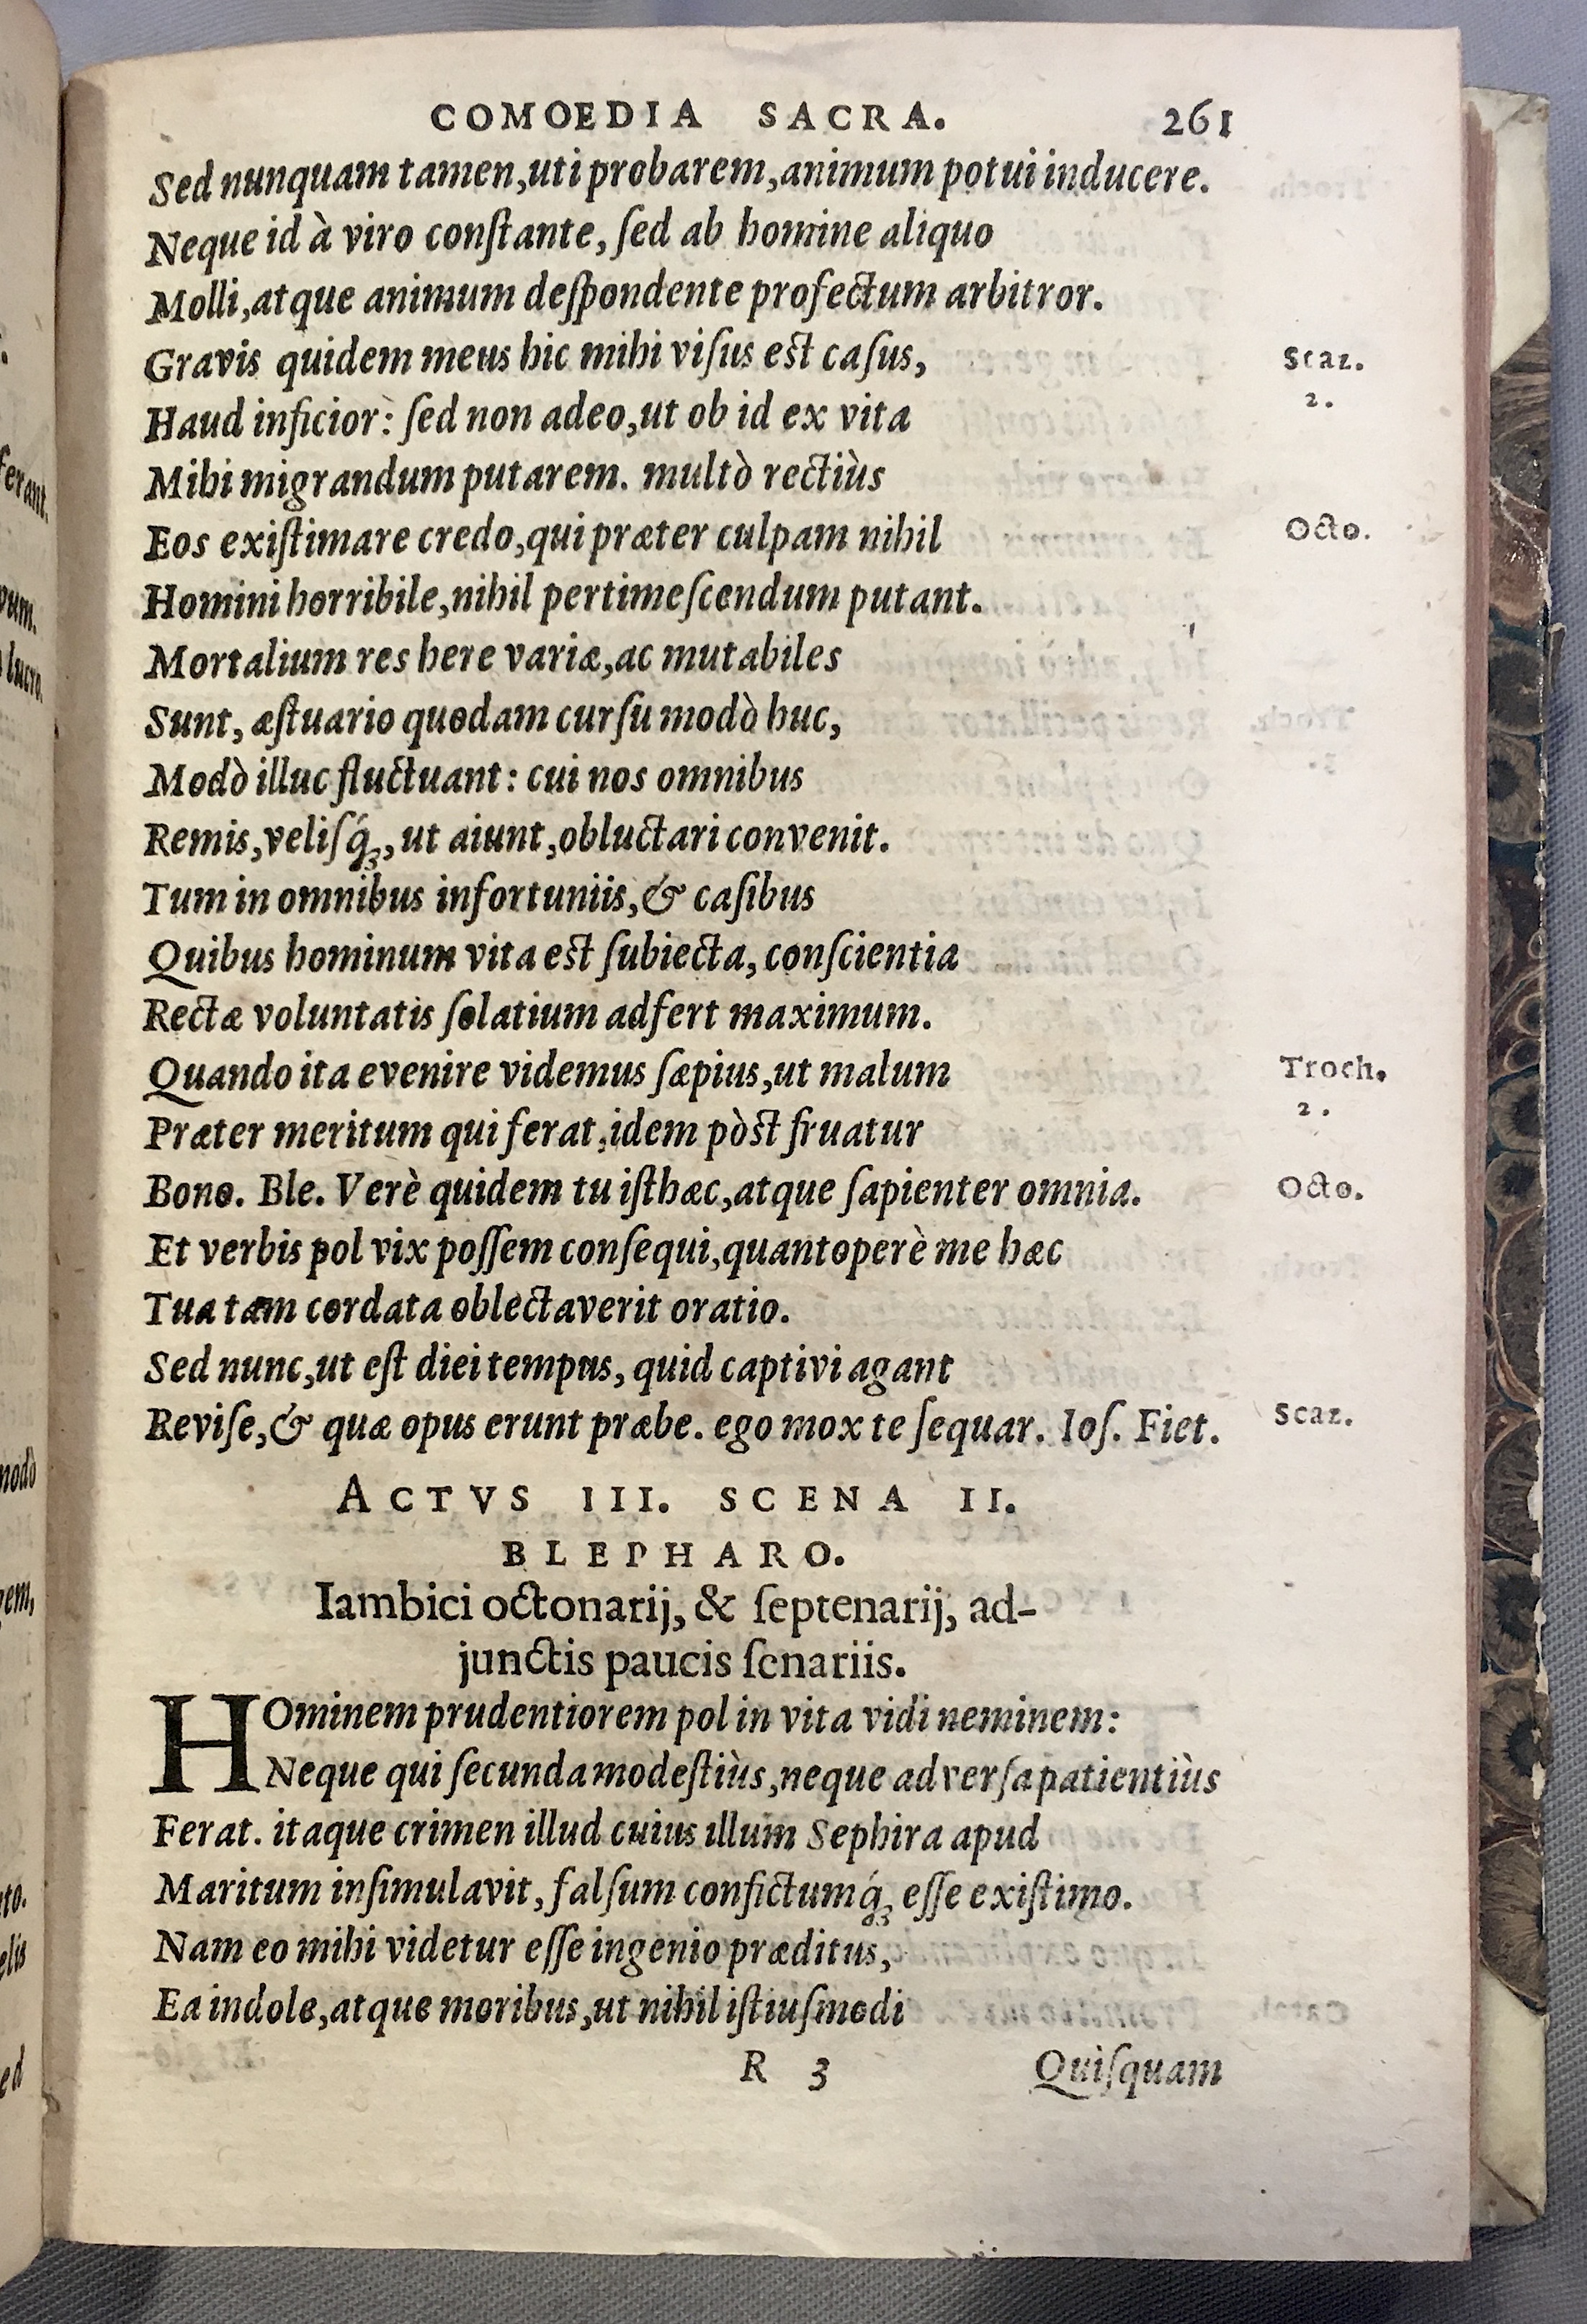 COMOEDIA SACRA. 261
Sed nunquam tamen, uti probarem, animum potui inducere.
Neque id à viro conſtante, ſed ab homine aliquo
Molli, atque animum deſpondente profectum arbitror.
Gravis quidem meus hic mihi viſus eſt caſus, Scaz. 2.
Haud inficior: ſed non adeo, ut ob id ex vita
Mihi migrandum putarem. multò rectiùs
Eos exiſtimare credo, qui præter culpam nihil Octo.
Homini horribile, nihil pertimeſcendum putant.
Mortalium res here variæ, ac mutabiles
Sunt, æſtuario quodam curſu modò huc,
Modò illuc fluctuant: cui nos omnibus
Remis, veliſq́ꝫ, ut aiunt, obluctari convenit.
Tum in omnibus infortuniis, & caſibus
Quibus hominum vita eſt ſubiecta, conſcientia
Rectæ voluntatis ſolatium adfert maximum.
Quando ita evenire videmus ſæpius, ut malum Troch. 2.
Præter meritum qui ferat, idem pòſt fruatur
Bono. Ble. Verè quidem tu iſthæc, atque ſapienter omnia. Octo.
Et verbis pol vix poſſem conſequi, quantoperè me hæc
Tua tam cordata oblectaverit oratio.
Sed nunc, ut eſt diei tempus, quid captivi agant
Reviſe, & quæ opus erunt præbe. ego mox te ſequar. Ioſ. Fiet. Scaz.
ACTVS III. SCENA II.
BLEPHARO.
Iambici octonarij, & ſeptenarij, ad-
junctis paucis ſenariis.
HOminem prudentiorem pol in vita vidi neminem:
Neque qui ſecunda modeſtiùs, neque adverſa patientiùs
Ferat. itaque crimen illud cuius illum Sephira apud
Maritum inſimulavit, falſum confictumq́ꝫ eſſe exiſtimo.
Nam eo mihi videtur eſſe ingenio præditus,
Ea indole, atque moribus, ut nihil iſtiuſmodi
R 3 Quiſquam